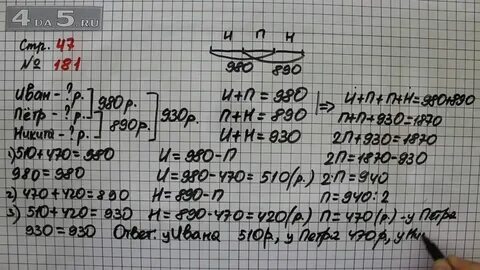 4DA5.RU
Стр. 47
№ 181
И П Н
980 890
Иван - ? р.
Пётр - ? р.
Никита - ? р.
980 р.
890 р.
930 р.
И + П = 980
П + Н = 890
И + Н = 930
=> И + П + П + Н = 980 + 890
П + П + 930 = 1870
2П + 930 = 1870
2П = 1870 - 930
2·П = 940
П = 940 : 2
П = 470 (р.) - у Петра
И = 980 - П
И = 980 - 470 = 510 (р.)
Н = 890 - П
Н = 890 - 470 = 420 (р.)
1) 510 + 470 = 980
980 = 980
2) 470 + 420 = 890
3) 510 + 420 = 930
930 = 930
Ответ: у Ивана 510 р., у Петра 470 р., у